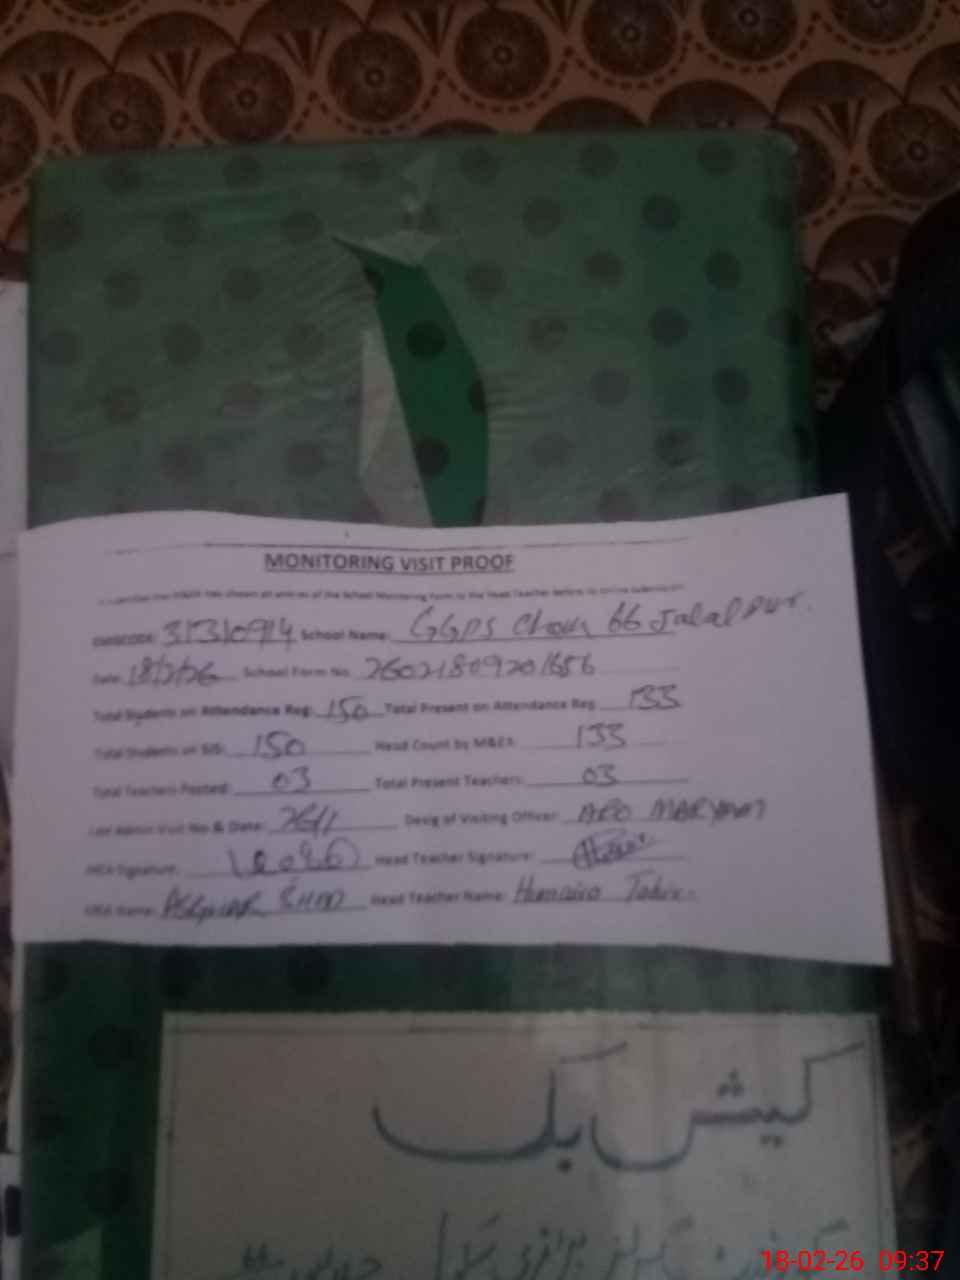 MONITORING VISIT PROOF
all entries of the School Monitoring Form to the Head Teacher before its online submission
EMISCODE: 31310914 School Name: GGPS Chak 66 Jalalpur
Date: 18/2/26 School Form No. 26021809201656
Total Students on Attendance Reg: 150 Total Present on Attendance Reg 133
Total Students on SIS: 150 Head Count by MEA: 133
Total Teachers Posted: 03 Total Present Teachers: 03
Last Admin Visit No & Date: 26/1 Desig of Visiting Officer: MARYAM
MEA Signature: Head Teacher Signature:
MEA Name: ASGHAR Head Teacher Name: Humaira Tahir
کیش بک
18-02-26 09:37